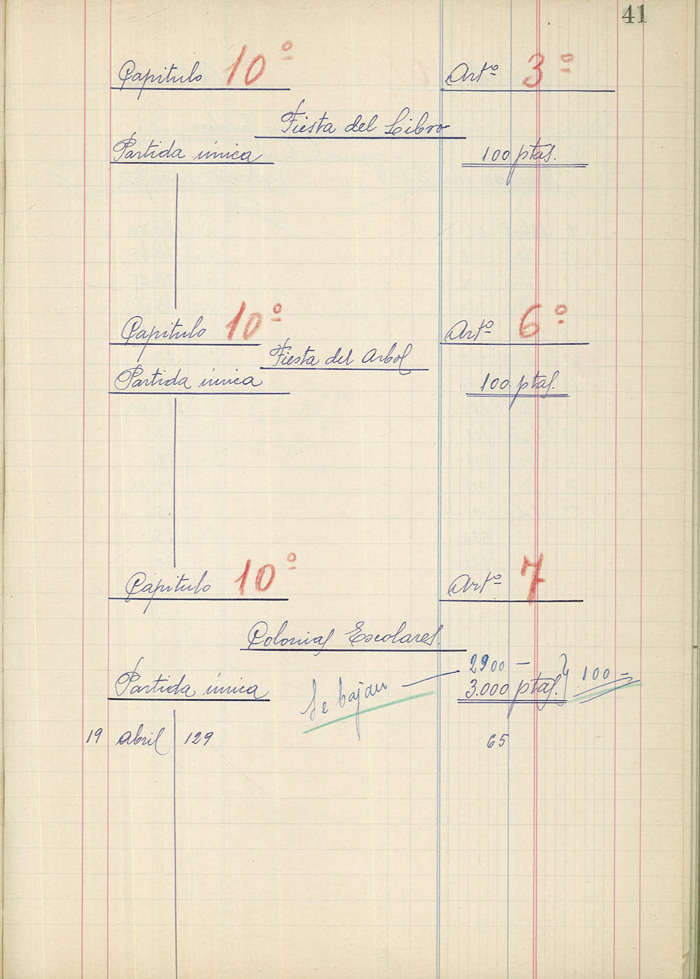 41
Capitulo 10º Artº 3º
Fiesta del Libro
Partida única 100 ptas.
Capitulo 10º Artº 6º
Fiesta del Arbol
Partida única 100 ptas.
Capitulo 10º Artº 7
Colonias Escolares.
2900 —
Partida única Se bajan — 3.000 ptas. } 100 =
19 abril 129 65